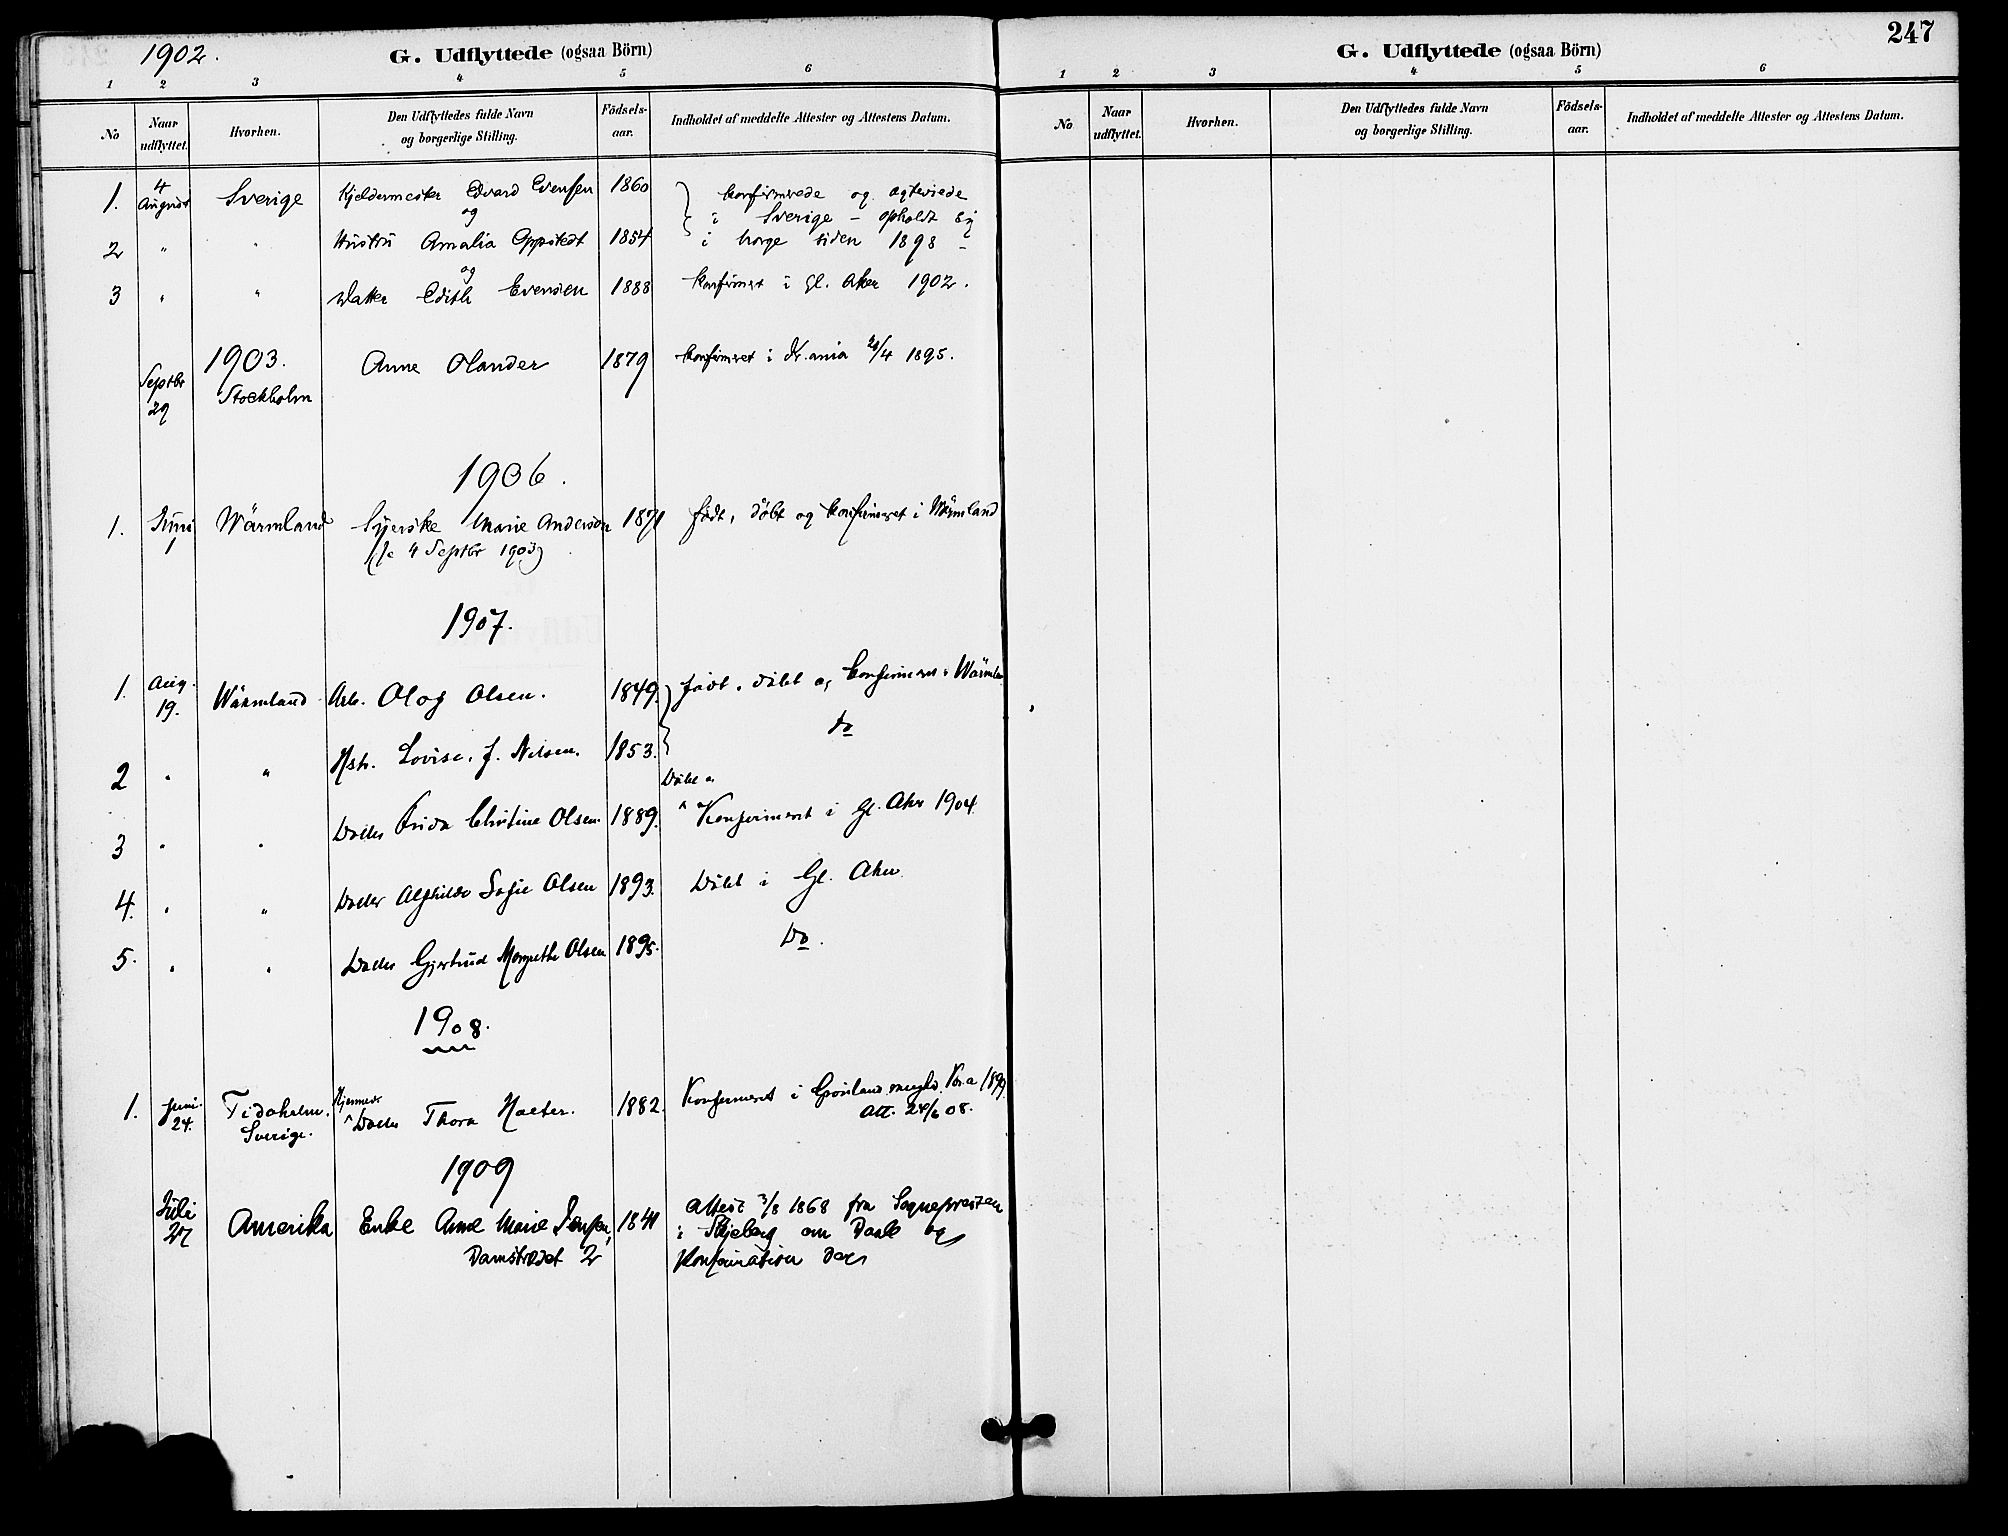 1902.
G. Udflyttede (ogsaa Börn)
1 2 3 4 5 6
No
Naar udflyttet.
Hvorhen.
Den Udflyttedes fulde Navn og borgerlige Stilling.
Födsels-aar.
Indholdet af meddelte Attester og Attestens Datum.
1. 4 August Sverige Kjeldermester Edvard Evensen 1860 } konfirmerede og ægteviede
og i Sverige – opholdt sig
2 " " Hustru Amalia Oppstedt 1854 i Norge siden 1898 –
og
3 " " Datter Edith Evensen 1888 konfirmert i Gl. Aker 1902.
1903.
Septbr 29 Stockholm Anne Olander 1879 konfirmeret i Kr.ania /4 1895.
1906.
1. Juni 1 Wärmland Syerske Marie Anderson 1871 født, døbt og konfirmeret i Wärmland
(se 4 Septbr 1903)
1907.
1. Aug. 19. Wärmland Arb. Olof Olsen. 1849. } født, døbt og konfirmeret i Wärmland
2 " " Hstr. Lovise. J. Nilsen. 1853. Do
Døbt o
3 " " Datter Frida Christine Olsen 1889. Konfirmeret i Gl. Aker 1904.
4. " " Datter Alfhilde Sofie Olsen 1893. Døbt i Gl. Aker
5. " " Datter Gjertrud Margrethe Olsen 1895. Do.
1908.
1. Juni 24. Tidaholm. Sverige. Hjemmev. Datter Thora Hoeter. 1882. Konfirmeret i Grønland menighd. Kra 1899.
Att. 24/6 08.
1909
Juli 27 Amerika Enke Anne Marie Jensen, 1841 Attest 3/8 1868 fra Sognepresten
Damstrædet 2 i Skjeberg om Daab og
Konfirmation der
247
G. Udflyttede (ogsaa Börn)
1 2 3 4 5 6
No
Naar udflyttet.
Hvorhen.
Den Udflyttedes fulde Navn og borgerlige Stilling.
Födsels-aar.
Indholdet af meddelte Attester og Attestens Datum.